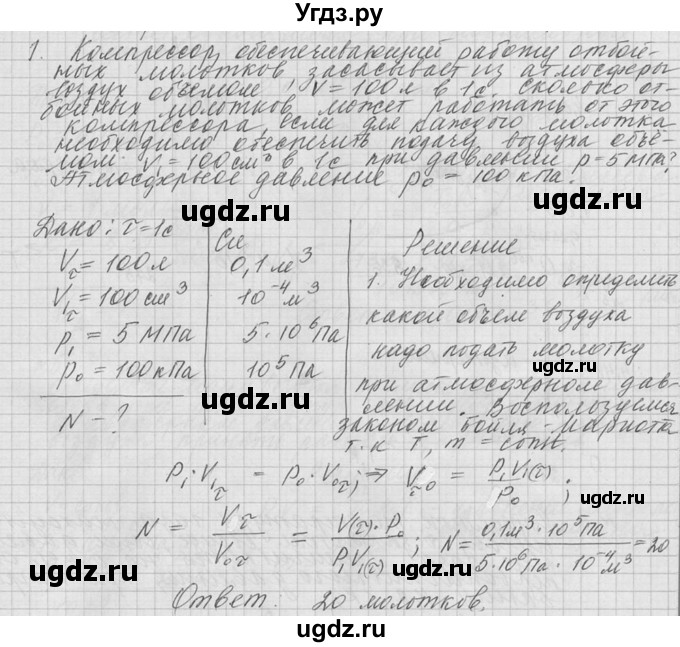 Угдз.ру
1. Компрессор, обеспечивающий работу отбой-
ных молотков засасывает из атмосферы
воздух объемом V = 100 л в 1с. Сколько от-
бойных молотков может работать от этого
компрессора, если для каждого молотка
необходимо обеспечить подачу воздуха объё-
мом V = 100 см³ в 1с при давлении p = 5 МПа?
Атмосферное давление p₀ = 100 кПа.
Дано: τ = 1с
Vτ = 100 л
V₁τ = 100 см³
p₁ = 5 МПа
p₀ = 100 кПа
N - ?
Си
0,1 м³
10⁻⁴ м³
5·10⁶ Па
10⁵ Па
Решение
1. Необходимо определить
какой объем воздуха
надо подать молотку
при атмосферном дав-
лении. Воспользуемся
законом Бойля-Мариота
т.к T, m = const.
P₁·V₁τ = P₀·V₀τ; ⇒ Vτ₀ = P₁V₁(τ)/P₀ ;
N = Vτ/V₀τ = V(τ)·P₀/P₁V₁(τ) ; N = 0,1м³·10⁵Па/5·10⁶Па·10⁻⁴м³ = 20
Ответ. 20 молотков.
ugdz.ru
ugdz.ru
ugdz.ru
ugdz.ru
ugdz.ru
ugdz.ru
ugdz.ru
ugdz.ru
ugdz.ru